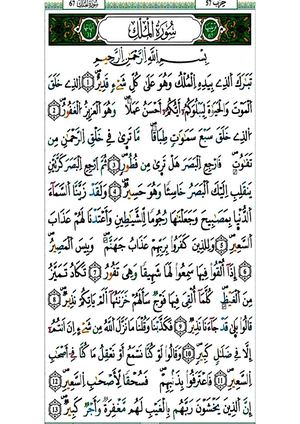 حزب 57
سورة الملك 67
سُورَةُ المُلْكِ
بِسْمِ اللَّهِ الرَّحْمَٰنِ الرَّحِيمِ
تَبَٰرَكَ ٱلَّذِى بِيَدِهِ ٱلْمُلْكُ وَهُوَ عَلَىٰ كُلِّ شَىْءٍ قَدِيرٌ ١ ٱلَّذِى خَلَقَ
ٱلْمَوْتَ وَٱلْحَيَوٰةَ لِيَبْلُوَكُمْ أَيُّكُمْ أَحْسَنُ عَمَلًا وَهُوَ ٱلْعَزِيزُ ٱلْغَفُورُ ٢
ٱلَّذِى خَلَقَ سَبْعَ سَمَٰوَٰتٍ طِبَاقًا مَّا تَرَىٰ فِى خَلْقِ ٱلرَّحْمَٰنِ مِن
تَفَٰوُتٍ فَٱرْجِعِ ٱلْبَصَرَ هَلْ تَرَىٰ مِن فُطُورٍ ٣ ثُمَّ ٱرْجِعِ ٱلْبَصَرَ كَرَّتَيْنِ
يَنقَلِبْ إِلَيْكَ ٱلْبَصَرُ خَاسِئًا وَهُوَ حَسِيرٌ ٤ وَلَقَدْ زَيَّنَّا ٱلسَّمَآءَ
ٱلدُّنْيَا بِمَصَٰبِيحَ وَجَعَلْنَٰهَا رُجُومًا لِّلشَّيَٰطِينِ وَأَعْتَدْنَا لَهُمْ عَذَابَ
ٱلسَّعِيرِ ٥ وَلِلَّذِينَ كَفَرُوا۟ بِرَبِّهِمْ عَذَابُ جَهَنَّمَ وَبِئْسَ ٱلْمَصِيرُ
٦ إِذَآ أُلْقُوا۟ فِيهَا سَمِعُوا۟ لَهَا شَهِيقًا وَهِىَ تَفُورُ ٧ تَكَادُ تَمَيَّزُ
مِنَ ٱلْغَيْظِ كُلَّمَآ أُلْقِىَ فِيهَا فَوْجٌ سَأَلَهُمْ خَزَنَتُهَآ أَلَمْ يَأْتِكُمْ نَذِيرٌ ٨
قَالُوا۟ بَلَىٰ قَدْ جَآءَنَا نَذِيرٌ ٩ فَكَذَّبْنَا وَقُلْنَا مَا نَزَّلَ ٱللَّهُ مِن شَىْءٍ إِنْ أَنتُمْ
إِلَّا فِى ضَلَٰلٍ كَبِيرٍ ١٠ وَقَالُوا۟ لَوْ كُنَّا نَسْمَعُ أَوْ نَعْقِلُ مَا كُنَّا فِىٓ أَصْحَٰبِ
ٱلسَّعِيرِ ١١ فَٱعْتَرَفُوا۟ بِذَنۢبِهِمْ فَسُحْقًا لِّأَصْحَٰبِ ٱلسَّعِيرِ ١٢
إِنَّ ٱلَّذِينَ يَخْشَوْنَ رَبَّهُم بِٱلْغَيْبِ لَهُم مَّغْفِرَةٌ وَأَجْرٌ كَبِيرٌ ١٣